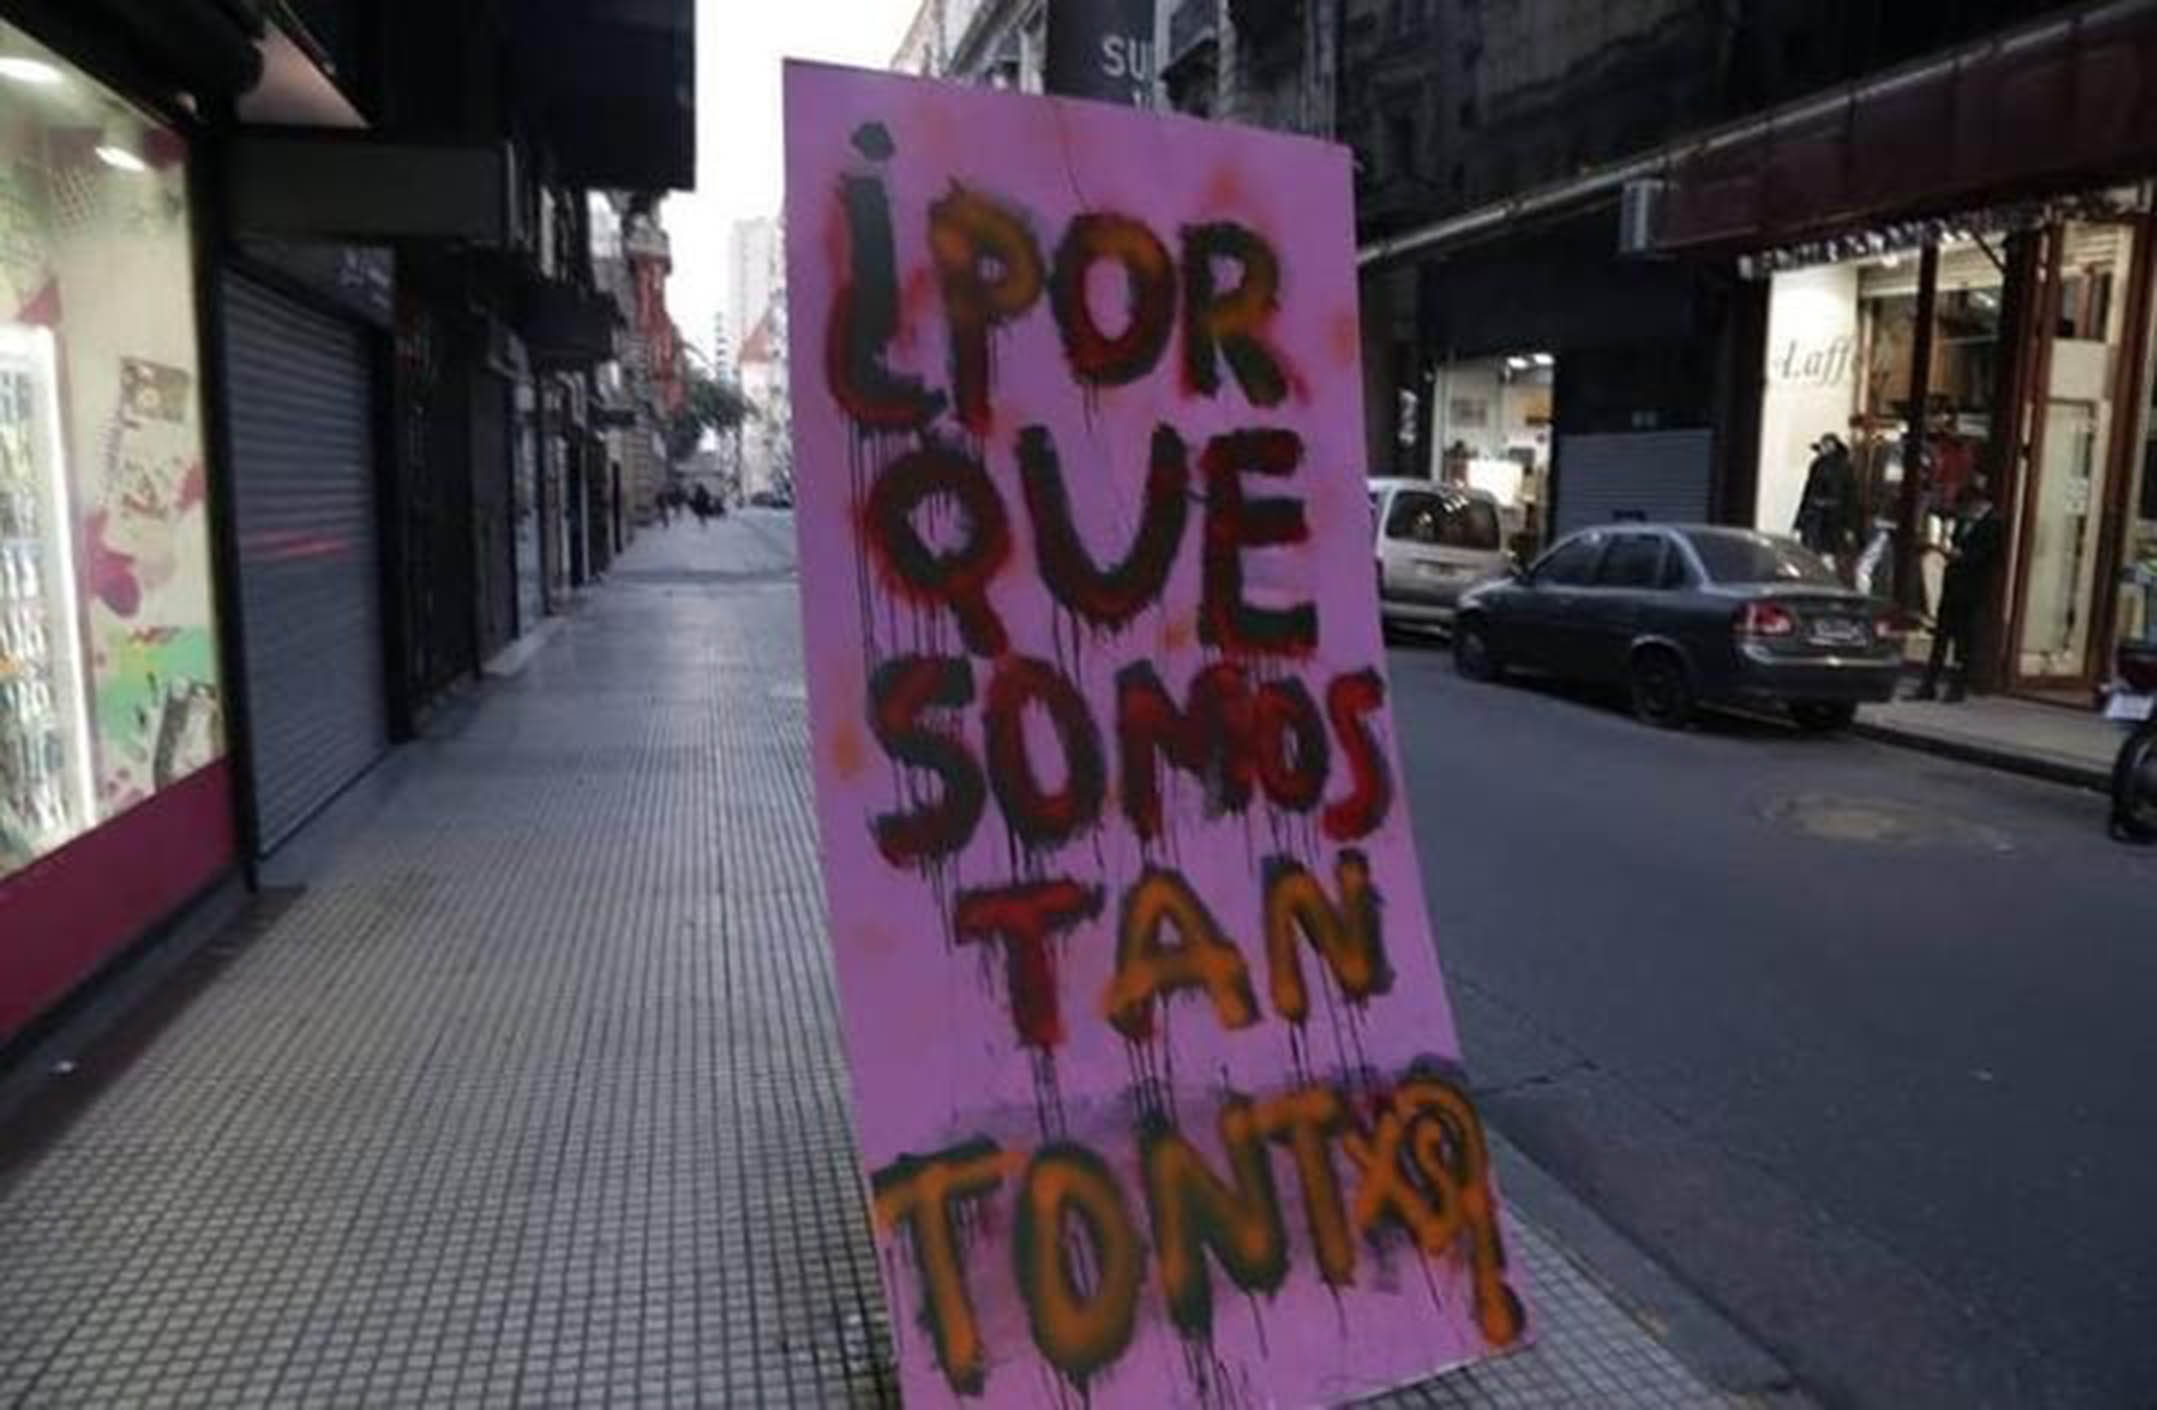 SU
¿POR
QUE
SOMOS
TAN
TONTXS?
Laff